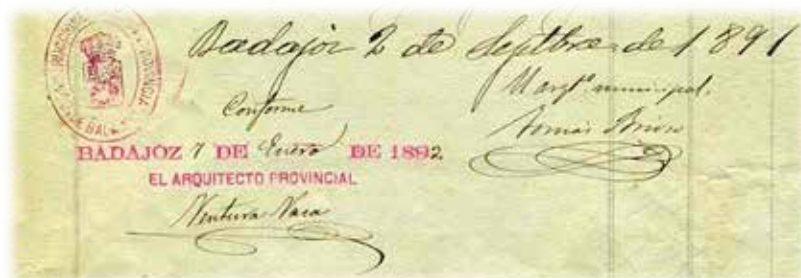 Badajoz 2 de Septbre de 1891
El arqtº municipal.
Tomás Brioso
Conforme
BADAJOZ 7 DE Enero DE 1892
EL ARQUITECTO PROVINCIAL
Ventura Vaca
PROVINCIA
DE BADA